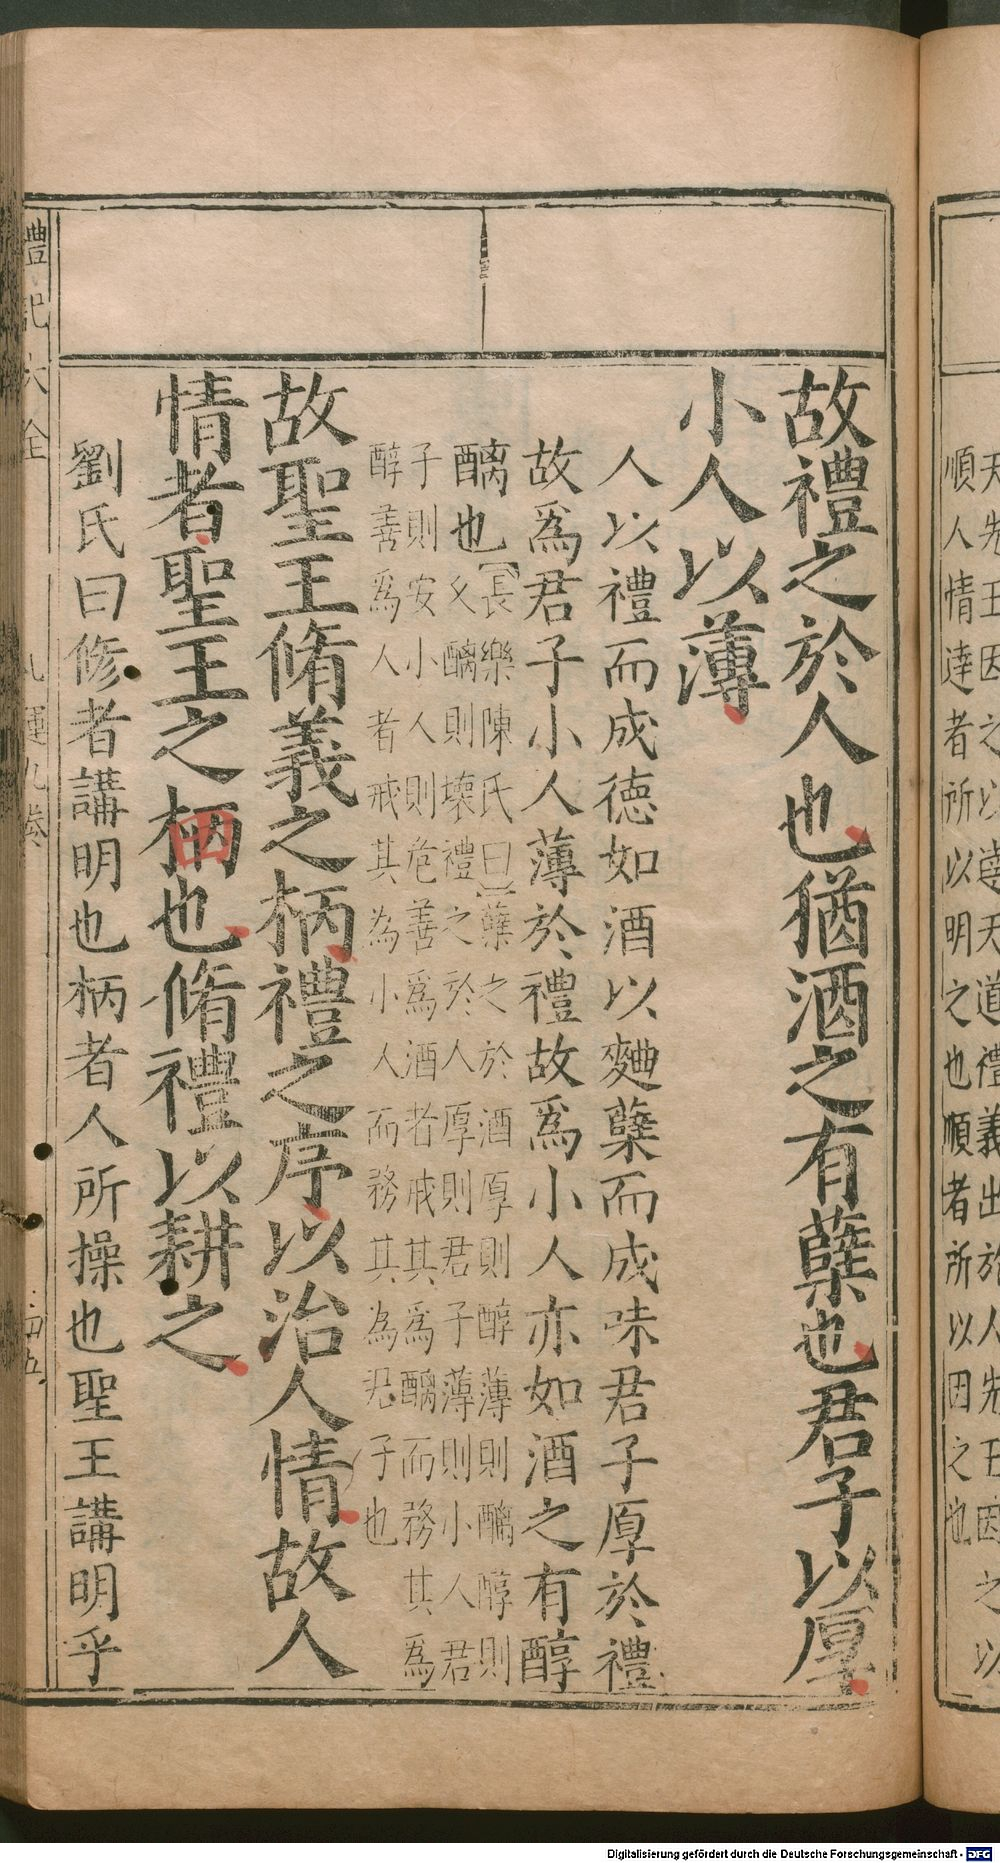 天先王因之以達天道禮義出於人先王因之以
順人情達者所以明之也順者所以因之也
故禮之於人也猶酒之有糵也君子以厚
小人以薄
人以禮而成德如酒以麯糵而成味君子厚於禮
故爲君子小人薄於禮故爲小人亦如酒之有醇
醨也
【長樂陳氏曰】糵之於酒厚則醇薄則醨醇則
久醨則壞禮之於人厚則君子薄則小人君
子則安小人則危善爲酒者戒其爲醨而務其爲
醇善爲人者戒其為小人而務其為君子也
故聖王脩義之柄禮之序以治人情故人
情者聖王之田也脩禮以耕之
劉氏曰修者講明也柄者人所操也聖王講明乎
禮記大全
禮運九卷
五
Digitalisierung gefördert durch die Deutsche Forschungsgemeinschaft - DFG